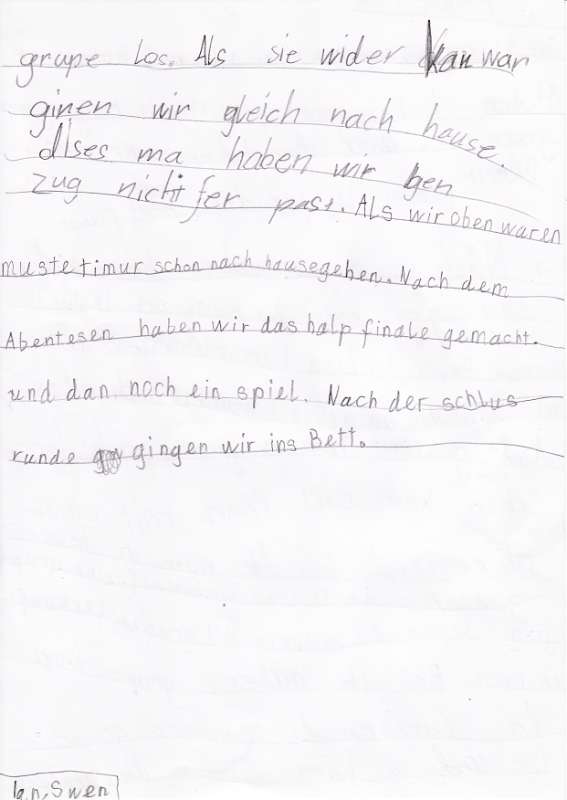 grupe los. Als sie wider kan war
ginen wir gleich nach hause.
dises ma haben wir den
zug nicht fer past. Als wir oben waren
muste timur schon nach hausegehen. Nach dem
Abentesen haben wir das halp finale gemacht.
und dan noch ein spiel. Nach der schlus
runde gingen wir ins Bett.
Jan, Swen